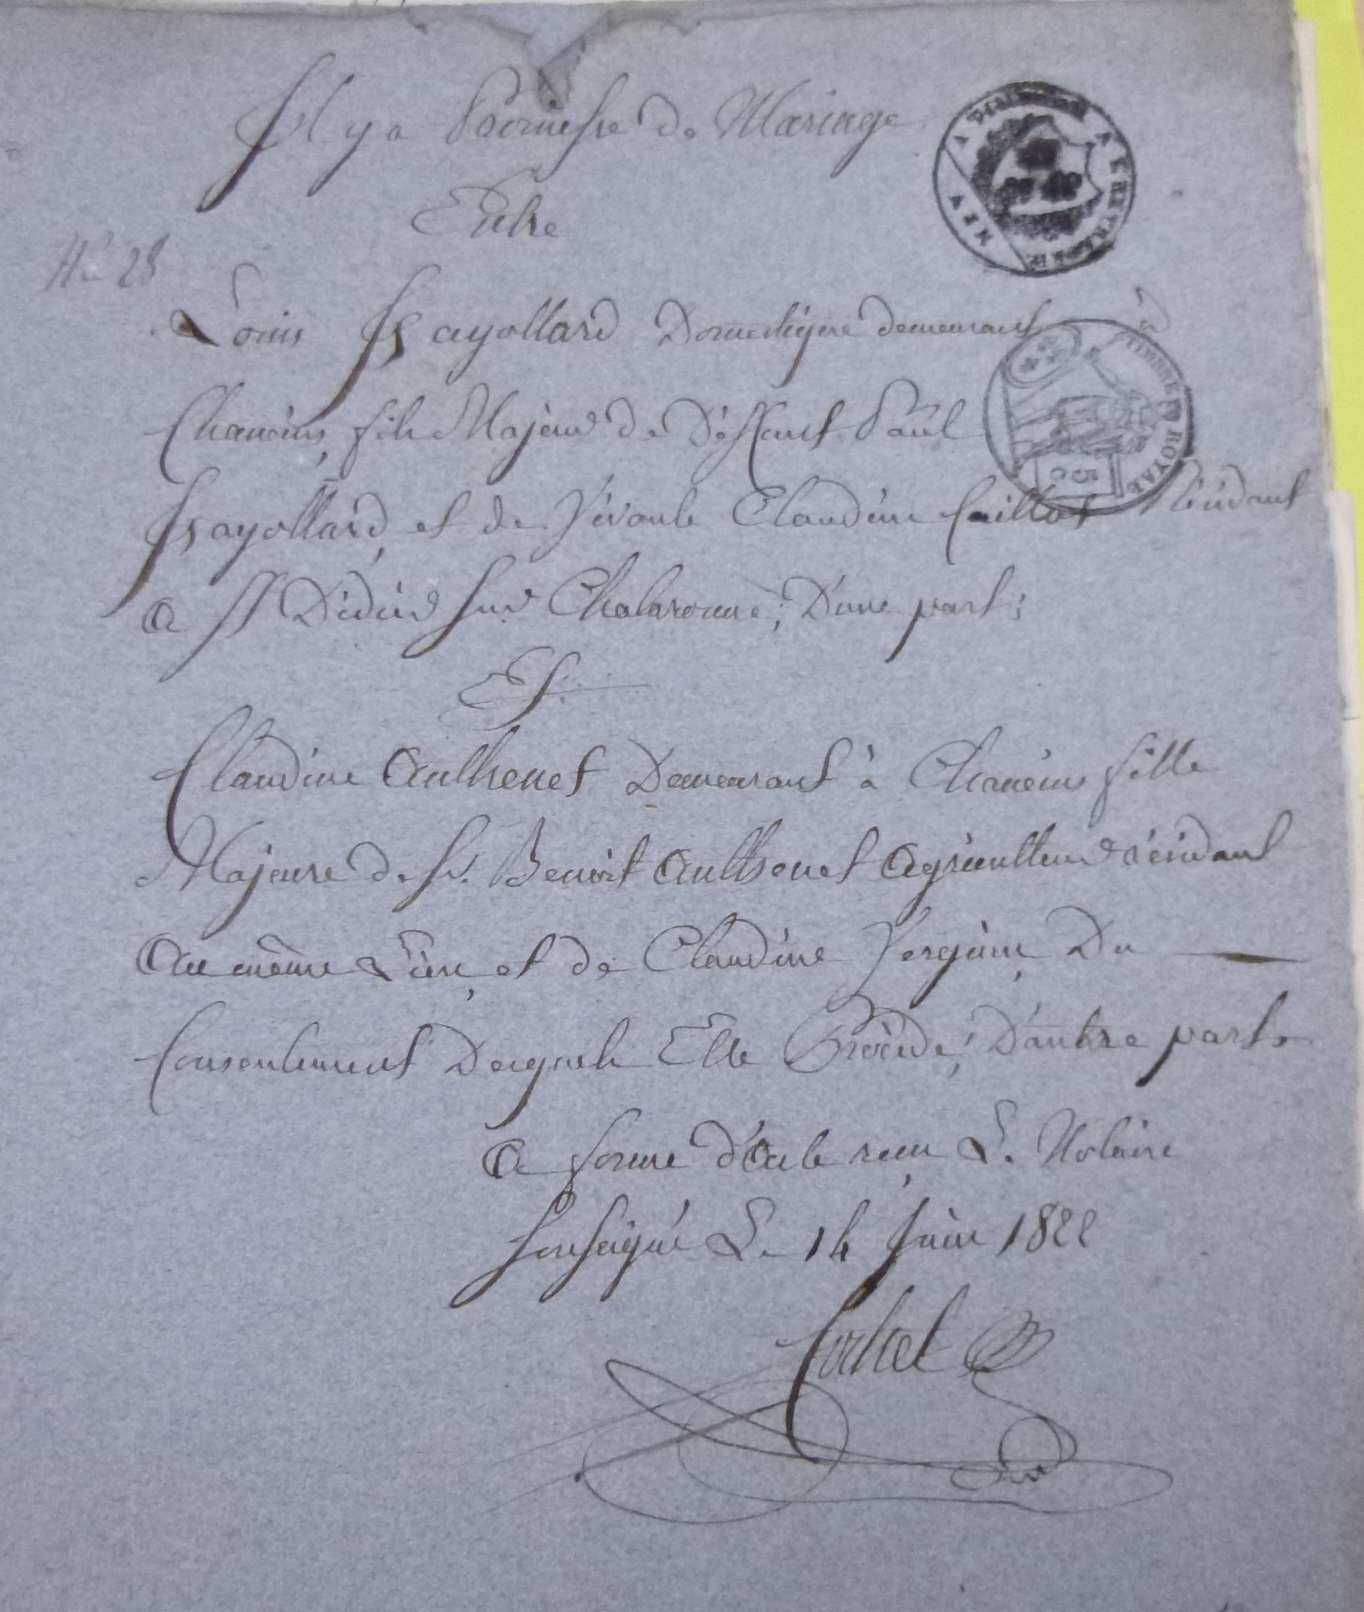 Il y a Promesse de Mariage
Entre
N.° 28
Louis Fayollard Domestique demeurant
Chaneins fils Majeur de Déffunt Paul
Fayollard, et de Vivante Claudine Caillot Résidant
a St Didier sur Chalaronne; D'une part;
Et
Claudine Authenet Demeurant à Chaneins fille
Majeure de Sr. Benoit Authenet Agriculteur résidant
Au même Lieu, et de Claudine Du
Consentement Desquels Elle Procède; D'autre part.
A forme d'Acte reçu Le Notaire
Soussigné Le 14 Juin 1822
TIMBRE ROYAL